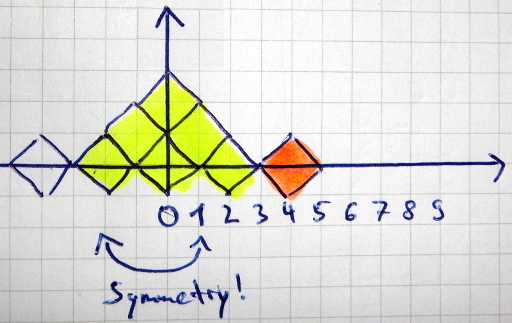 0 1 2 3 4 5 6 7 8 9
Symmetry!